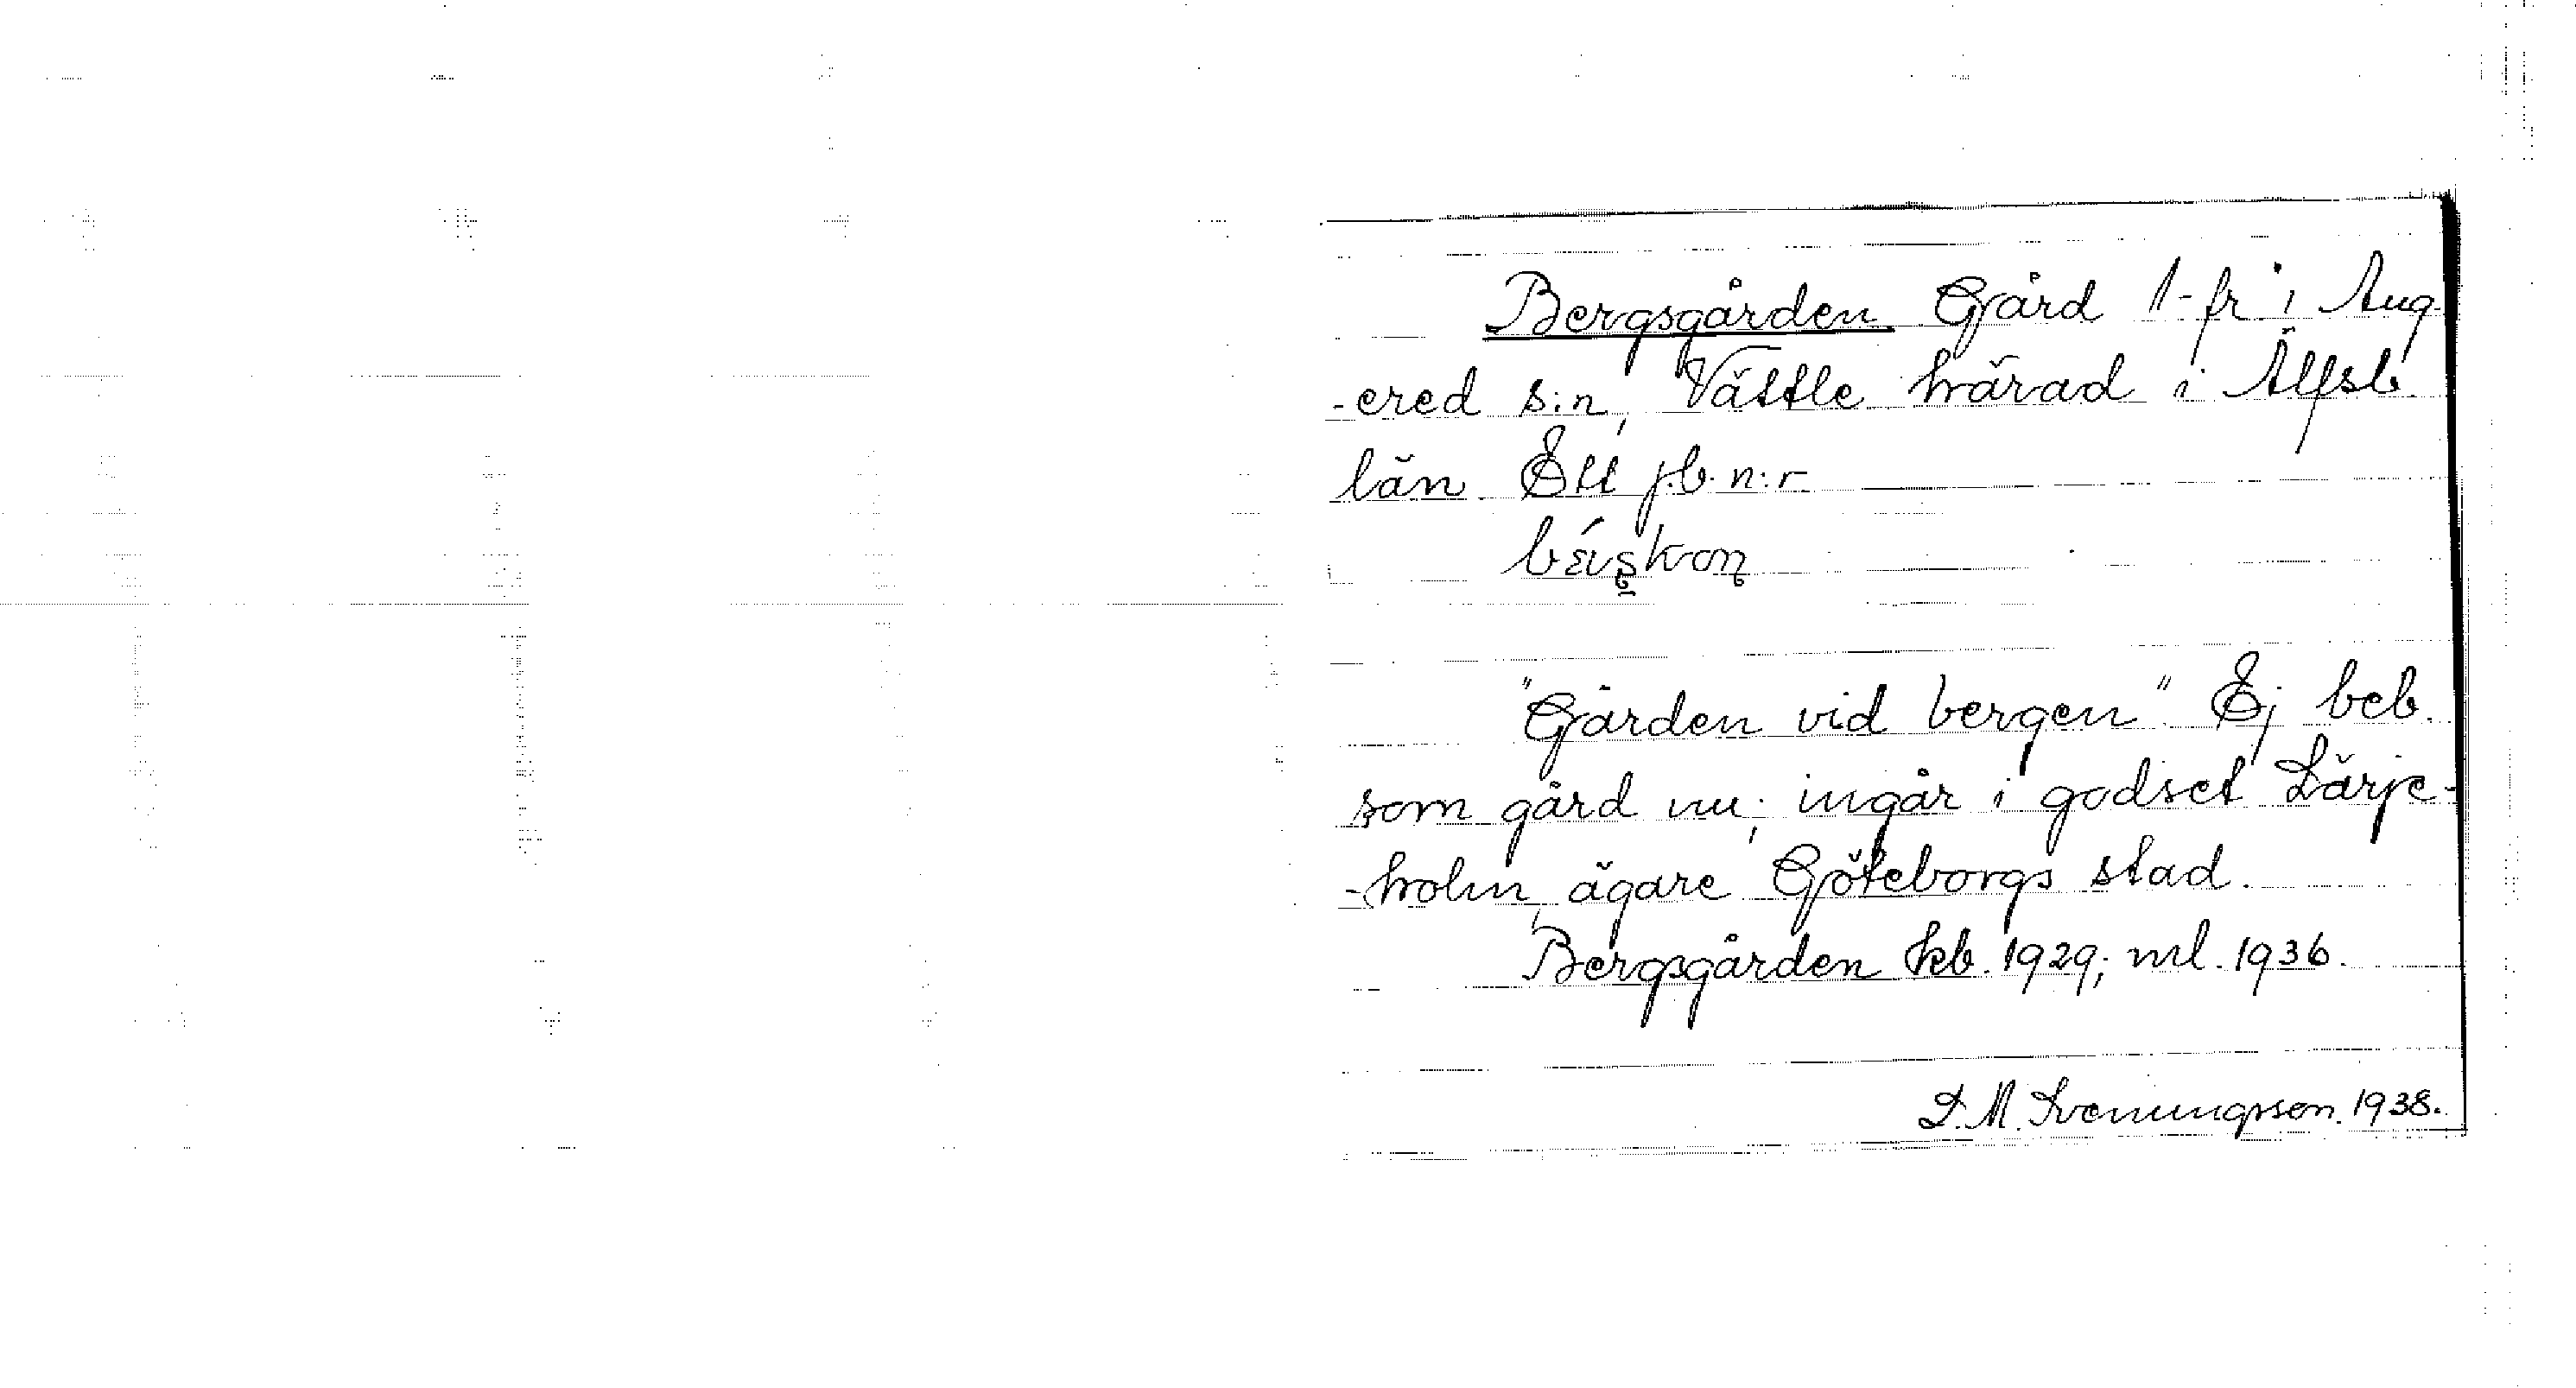 Bergsgården Gård 1-fr i Ang
-ered s:n, Vättle härad i Älfsb
län Ett j.b. n:r

"Gården vid bergen" Ej beb.
som gård nu; ingår i godset Lärje-
-holm, ägare Göteborgs stad.
Bergsgården kb. 1929; ml. 1936.
D. M. Svenungsson. 1938.